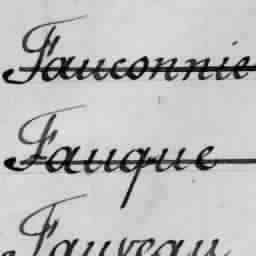 Fauconnie
Fauque
Fauveau